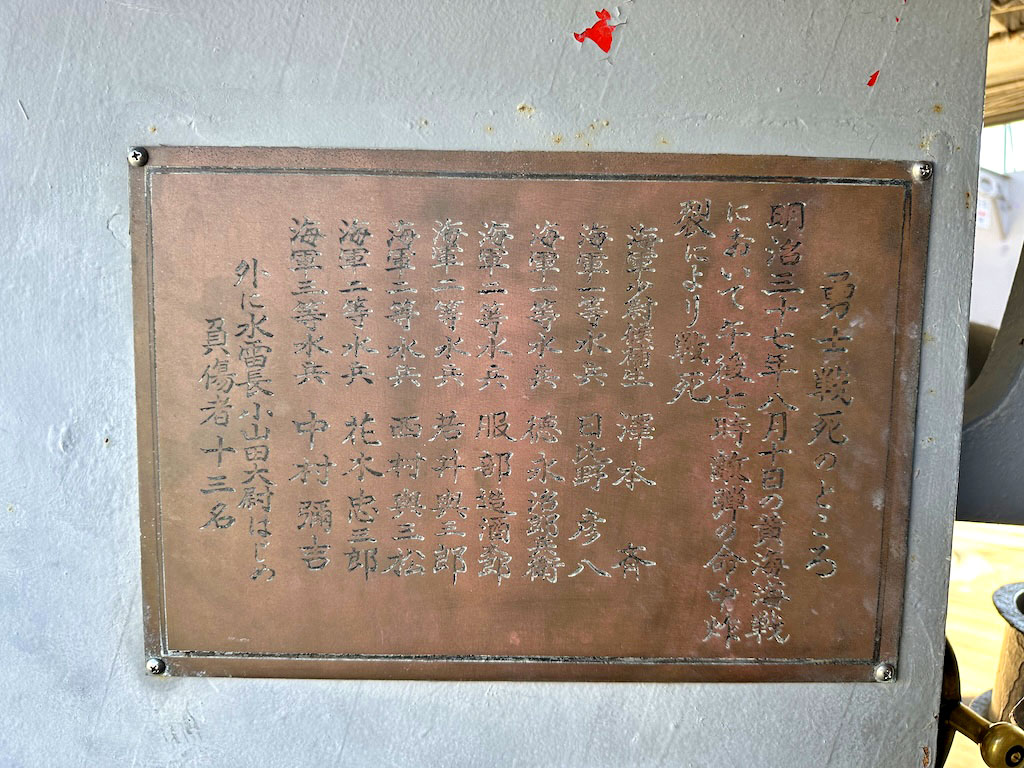 勇士戦死のところ
明治三十七年八月十日の黄海海戦
において午後七時敵弾の命中炸
裂により戦死
海軍少尉候補生 澤本 斉
海軍一等水兵 日比野 彦八
海軍一等水兵 徳永治郎兵衛
海軍二等水兵 服部造酒郎
海軍二等水兵 若井與三郎
海軍二等水兵 西村與三松
海軍二等水兵 花木忠三郎
海軍三等水兵 中村彌吉
外に水雷長小山田大尉はじめ
負傷者十三名